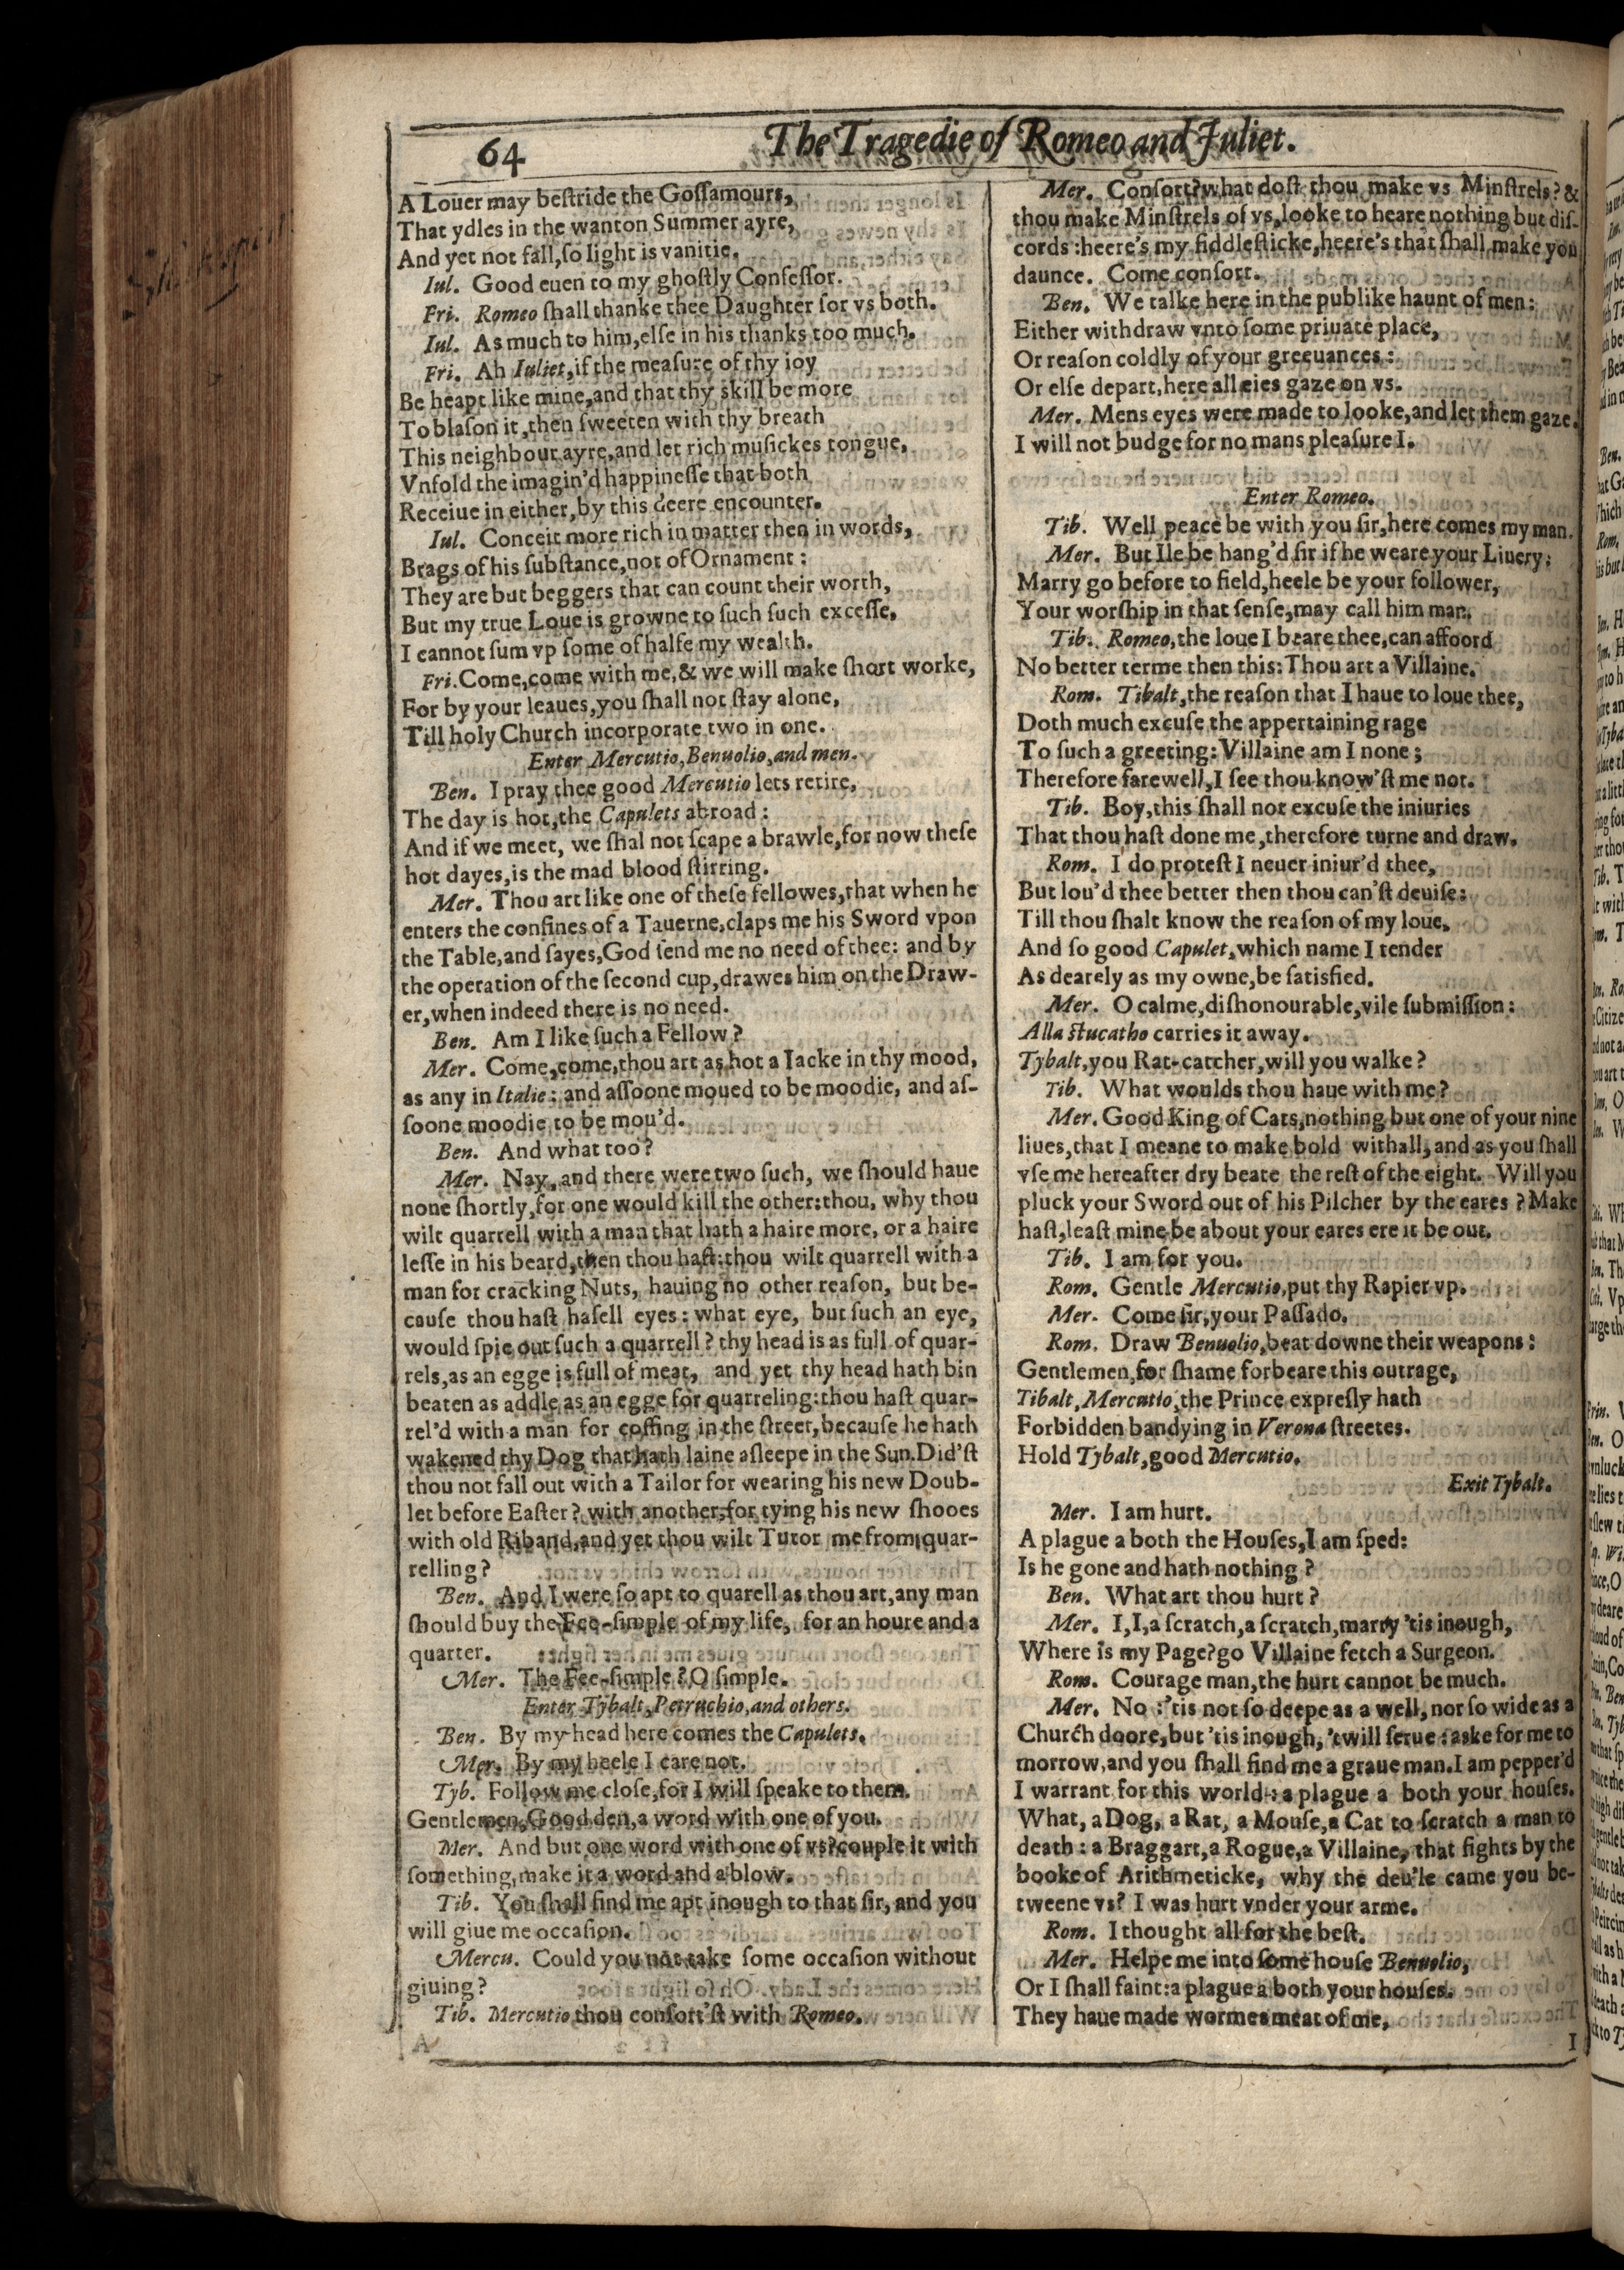 64
The Tragedie of Romeo and Juliet.
A Louer may beſtride the Goſſamours,
That ydles in the wanton Summer ayre,
And yet not fall,ſo light is vanitie.
Iul. Good euen to my ghoſtly Confeſſor.
Fri. Romeo ſhall thanke thee Daughter for vs both.
Iul. As much to him,elſe in his thanks too much.
Fri. Ah Iuliet,if the meaſure of thy ioy
Be heapt like mine,and that thy skill be more
To blaſon it,then ſweeten with thy breath
This neighbour ayre,and let rich muſickes tongue,
Vnfold the imagin'd happineſſe that both
Receiue in either,by this deere encounter.
Iul. Conceit more rich in matter then in words,
Brags of his ſubſtance,not of Ornament:
They are but beggers that can count their worth,
But my true Loue is growne to ſuch ſuch exceſſe,
I cannot ſum vp ſome of halfe my wealth.
Fri.Come,come with me,& we will make ſhort worke,
For by your leaues,you ſhall not ſtay alone,
Till holy Church incorporate two in one.
Enter Mercutio,Benuolio,and men.
Ben. I pray thee good Mercutio lets retire,
The day is hot,the Capulets abroad:
And if we meet, we ſhal not ſcape a brawle,for now theſe
hot dayes,is the mad blood ſtirring.
Mer. Thou art like one of theſe fellowes,that when he
enters the confines of a Tauerne,claps me his Sword vpon
the Table,and ſayes,God ſend me no need of thee: and by
the operation of the ſecond cup,drawes him on the Draw-
er,when indeed there is no need.
Ben. Am I like ſuch a Fellow?
Mer. Come,come,thou art as hot a Iacke in thy mood,
as any in Italie: and aſſoone moued to be moodie, and aſ-
ſoone moodie to be mou'd.
Ben. And what too?
Mer. Nay, and there were two ſuch, we ſhould haue
none ſhortly,for one would kill the other:thou, why thou
wilt quarrell with a man that hath a haire more, or a haire
leſſe in his beard,then thou haſt:thou wilt quarrell with a
man for cracking Nuts, hauing no other reaſon, but be-
cauſe thou haſt haſell eyes: what eye, but ſuch an eye,
would ſpie out ſuch a quarrell? thy head is as full of quar-
rels,as an egge is full of meat, and yet thy head hath bin
beaten as addle as an egge for quarreling:thou haſt quar-
rel'd with a man for coffing in the ſtreet,becauſe he hath
wakened thy Dog that hath laine aſleepe in the Sun.Did'ſt
thou not fall out with a Tailor for wearing his new Doub-
let before Eaſter? with another,for tying his new ſhooes
with old Riband,and yet thou wilt Tutor me from quar-
relling?
Ben. And I were ſo apt to quarell as thou art,any man
ſhould buy the Fee-ſimple of my life, for an houre and a
quarter.
Mer. The Fee-ſimple?O ſimple.
Enter Tybalt,Petruchio,and others.
Ben. By my head here comes the Capulets.
Mer. By my heele I care not.
Tyb. Follow me cloſe,for I will ſpeake to them.
Gentlemen,Good den,a word with one of you.
Mer. And but one word with one of vs?couple it with
ſomething,make it a word and a blow.
Tib. You ſhall find me apt inough to that ſir, and you
will giue me occaſion.
Mercu. Could you not take ſome occaſion without
giuing?
Tib. Mercutio thou conſort'ſt with Romeo.
Mer. Conſort?what doſt thou make vs Minſtrels?&
thou make Minſtrels of vs,looke to heare nothing but diſ-
cords:heere's my fiddleſticke,heere's that ſhall make you
daunce. Come conſort.
Ben. We talke here in the publike haunt of men:
Either withdraw vnto ſome priuate place,
Or reaſon coldly of your greeuances:
Or elſe depart,here all eies gaze on vs.
Mer. Mens eyes were made to looke,and let them gaze.
I will not budge for no mans pleaſure I.
Enter Romeo.
Tib. Well peace be with you ſir,here comes my man.
Mer. But Ile be hang'd ſir if he weare your Liuery:
Marry go before to field,heele be your follower,
Your worſhip in that ſenſe,may call him man.
Tib. Romeo,the loue I beare thee,can affoord
No better terme then this:Thou art a Villaine.
Rom. Tibalt,the reaſon that I haue to loue thee,
Doth much excuſe the appertaining rage
To ſuch a greeting:Villaine am I none;
Therefore farewell,I ſee thou know'ſt me not.
Tib. Boy,this ſhall not excuſe the iniuries
That thou haſt done me,therefore turne and draw.
Rom. I do proteſt I neuer iniur'd thee,
But lou'd thee better then thou can'ſt deuiſe:
Till thou ſhalt know the reaſon of my loue,
And ſo good Capulet,which name I tender
As dearely as my owne,be ſatisfied.
Mer. O calme,diſhonourable,vile ſubmiſſion:
Alla ſtucatho carries it away.
Tybalt,you Rat-catcher,will you walke?
Tib. What woulds thou haue with me?
Mer.Good King of Cats,nothing but one of your nine
liues,that I meane to make bold withall,and as you ſhall
vſe me hereafter dry beate the reſt of the eight. Will you
pluck your Sword out of his Pilcher by the eares?Make
haſt,leaſt mine be about your eares ere it be out.
Tib. I am for you.
Rom. Gentle Mercutio,put thy Rapier vp.
Mer. Come ſir,your Paſſado.
Rom. Draw Benuolio,beat downe their weapons:
Gentlemen,for ſhame forbeare this outrage,
Tibalt,Mercutio,the Prince expreſly hath
Forbidden bandying in Verona ſtreetes.
Hold Tybalt,good Mercutio.
Exit Tybalt.
Mer. I am hurt.
A plague a both the Houſes,I am ſped:
Is he gone and hath nothing?
Ben. What art thou hurt?
Mer. I,I,a ſcratch,a ſcratch,marry 'tis inough,
Where is my Page?go Villaine fetch a Surgeon.
Rom. Courage man,the hurt cannot be much.
Mer. No:'tis not ſo deepe as a well,nor ſo wide as a
Church doore,but 'tis inough,'twill ſerue:aske for me to
morrow,and you ſhall find me a graue man.I am pepper'd
I warrant for this world:a plague a both your houſes.
What, a Dog, a Rat, a Mouſe,a Cat to ſcratch a man to
death:a Braggart,a Rogue,a Villaine, that fights by the
booke of Arithmeticke, why the deu'le came you be-
tweene vs? I was hurt vnder your arme.
Rom. I thought all for the beſt.
Mer. Helpe me into ſome houſe Benuolio,
Or I ſhall faint:a plague a both your houſes.
They haue made wormes meat of me,
I